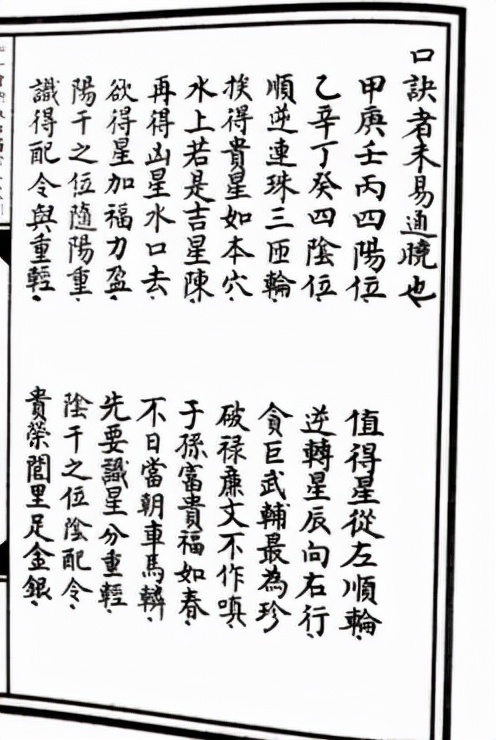 口訣者未易通曉也
甲庚壬丙四陽位 值得星從左順輪
乙辛丁癸四陰位 逆轉星辰向右行
順逆連珠三匝輪 貪巨武輔最為珍
挨得貴星如本穴 破祿廉文不作嗔
水上若是吉星陳 子孫富貴福如春
再得凶星水口去 不日當朝車馬轔
欲得星加福力盈 先要識星分重輕
陽干之位隨陽重 陰干之位陰配令
識得配令與重輕 貴榮閭里足金銀